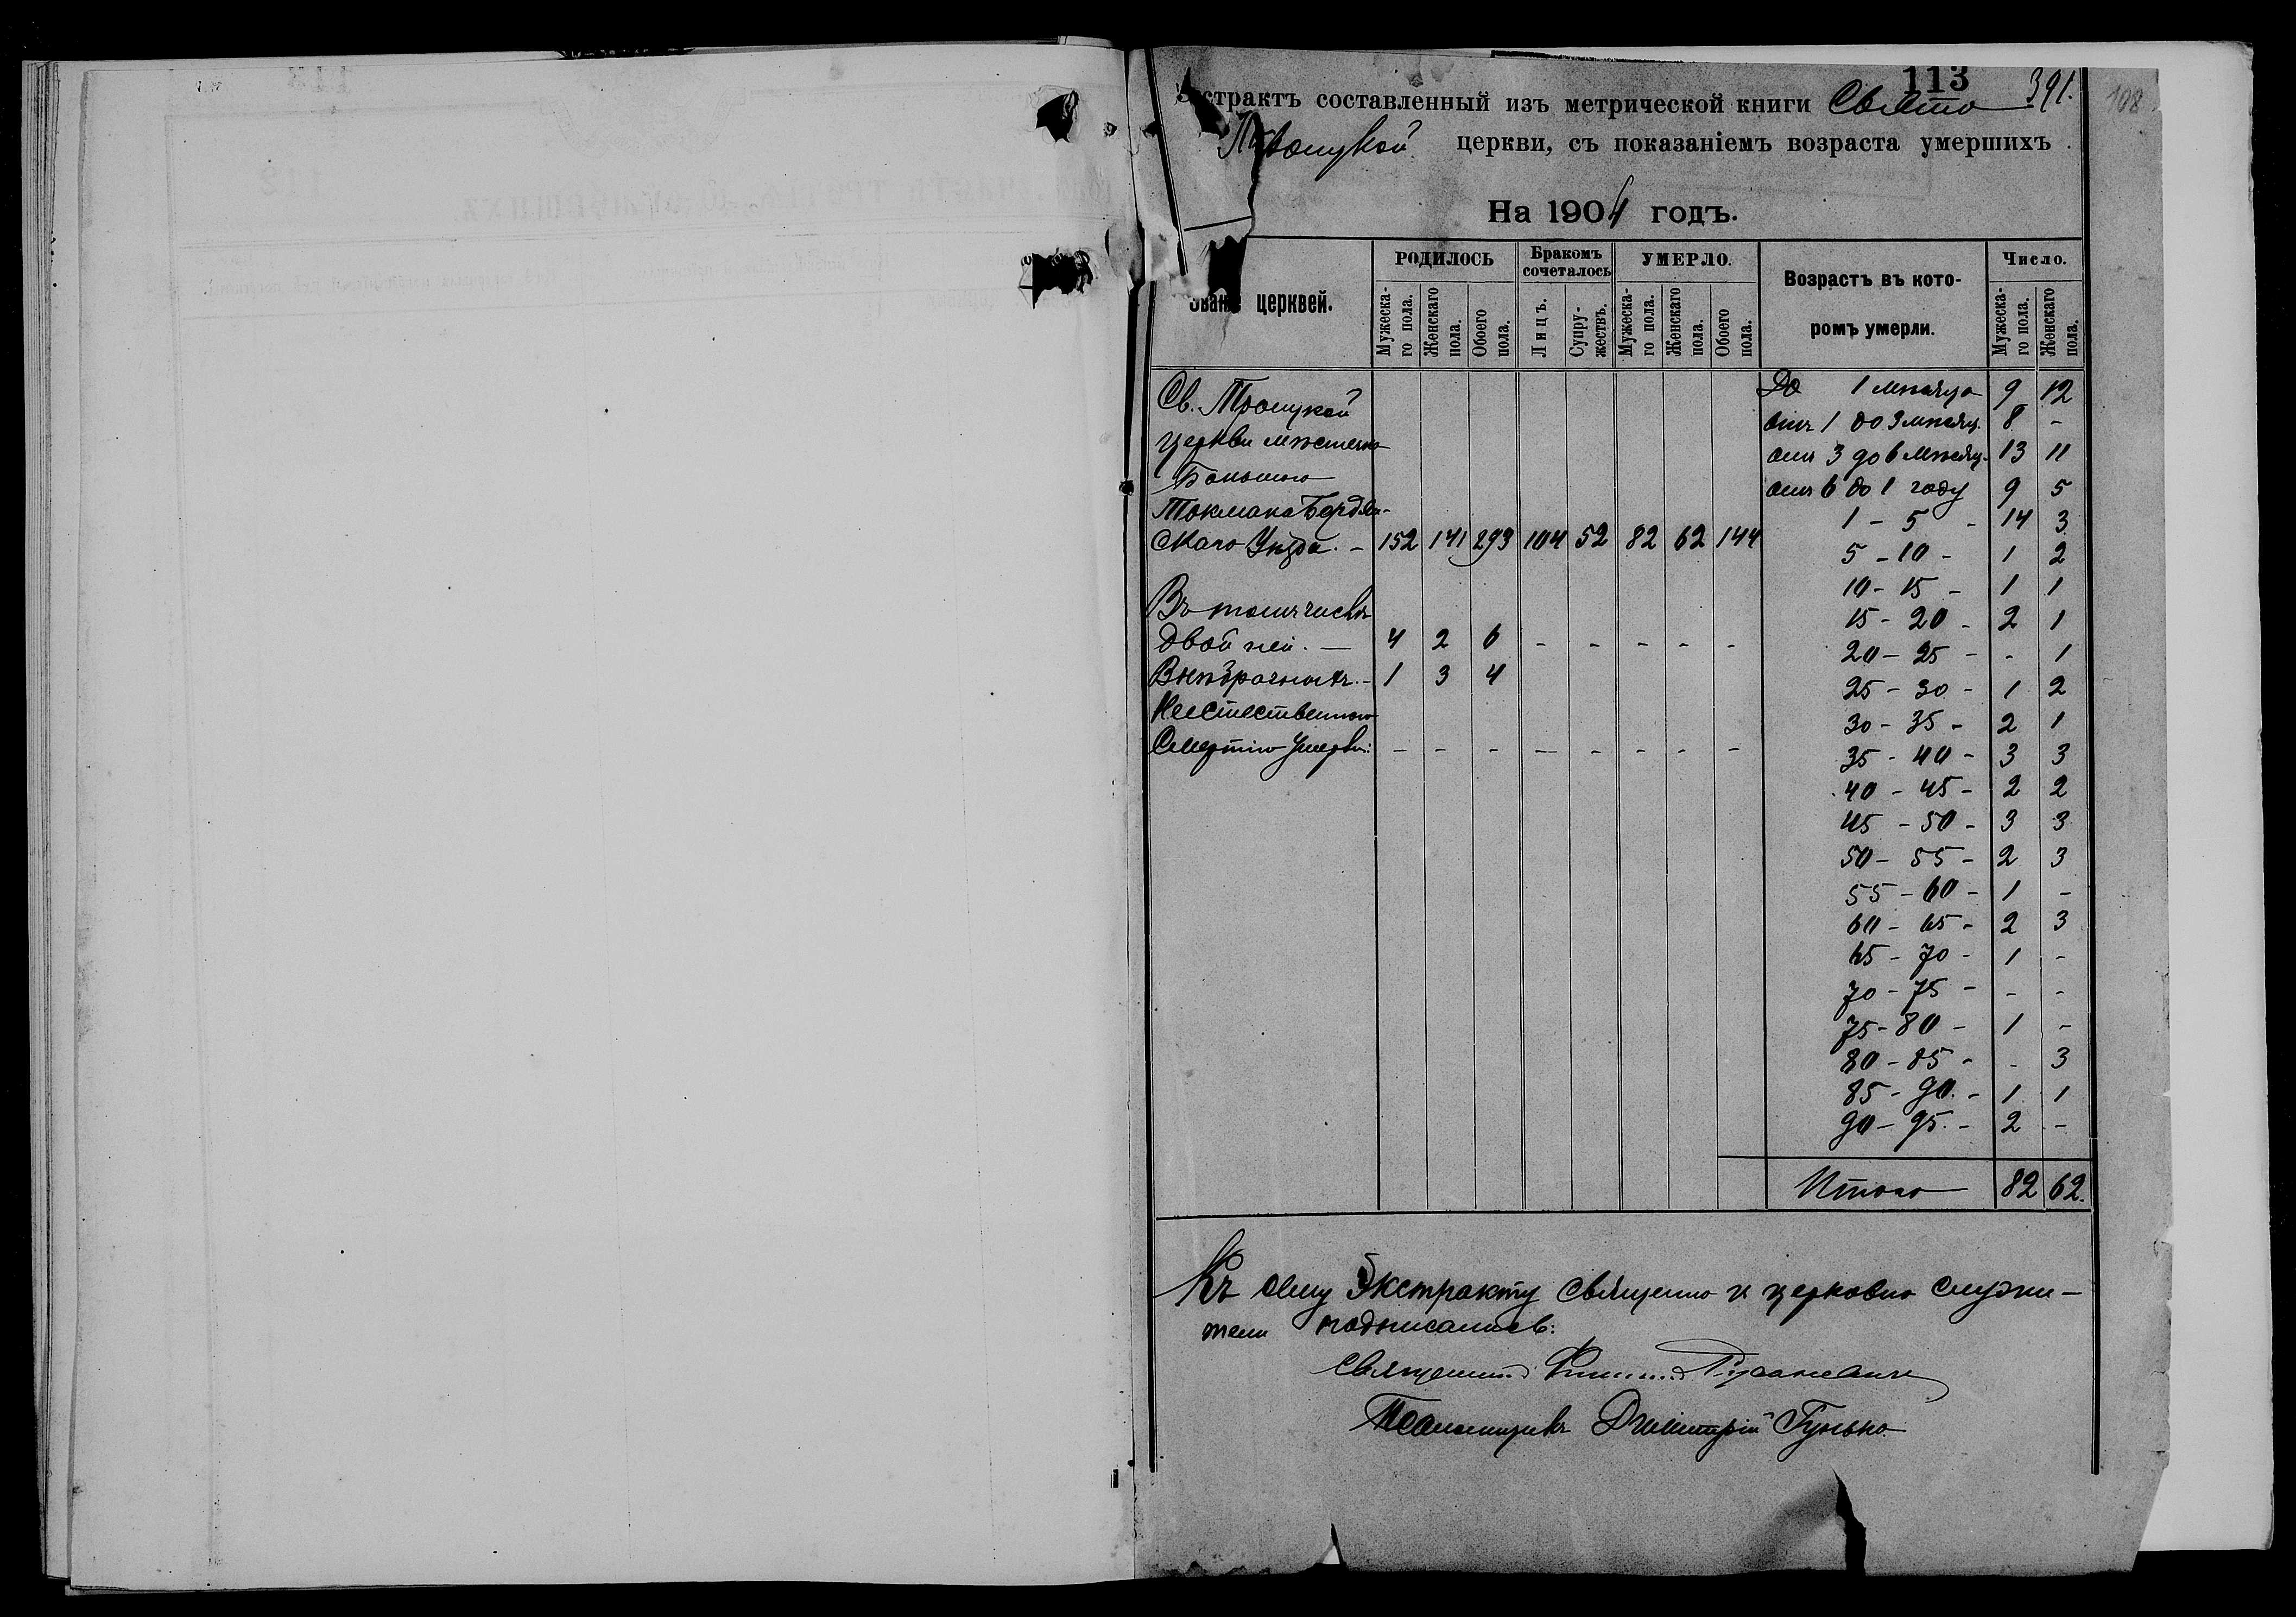 113 391. 108
Экстрактъ составленный изъ метрической книги Свято
Троицкой церкви, съ показаніемъ возраста умершихъ
На 1904 годъ.
Званіе церквей.
РОДИЛОСЬ
Бракомъ сочеталось
УМЕРЛО.
Возрастъ въ которомъ умерли.
Число.
Мужеска-го пола.
Женскаго пола.
Обоего пола.
Лицъ.
Супру-жествъ.
Мужеска-го пола.
Женскаго пола.
Обоего пола.
Мужеска-го пола.
Женскаго пола.
Св. Троицкой
церкви мѣстечка
Большого
Токмака Бердян-
скаго Уѣзда. – 152 141 293 104 52 82 62 144
Въ томъ числѣ
двойней. — 4 2 6 - - - - -
Внѣбрачныхъ. – 1 3 4
Неестественною
Смертію Умерло: – - - — - - - -
До 1 мѣсяца 9 12
отъ 1 до 3 мѣсяц. 8 -
отъ 3 до 6 мѣсяц. 13 11
отъ 6 до 1 году 9 5
1 - 5 - 14 3
5 - 10 - 1 2
10 - 15 - 1 1
15 - 20 - 2 1
20 - 25 - - 1
25 - 30 - 1 2
30 - 35 - 2 1
35 - 40 - 3 3
40 - 45 - 2 2
45 - 50 - 3 3
50 - 55 - 2 3
55 - 60 - 1 -
60 - 65 - 2 3
65 - 70 - 1 -
70 - 75 - - -
75 - 80 - 1 -
80 - 85 - - 3
85 - 90. - 1 1
90 - 95. - 2 -
Итого 82 62.
Къ сему Экстракту священно и церковно служи-
тели подписались:
Священникъ
Псаломщикъ Димитрій Гунько